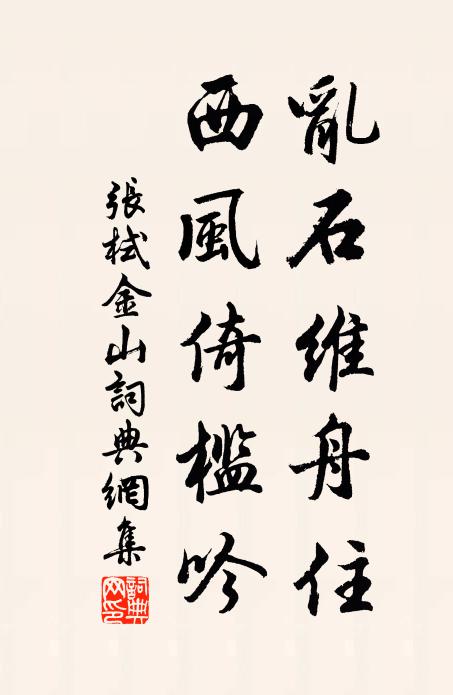 亂石維舟住
西風倚檻吟
張栻金山詞典網集
詞典网印